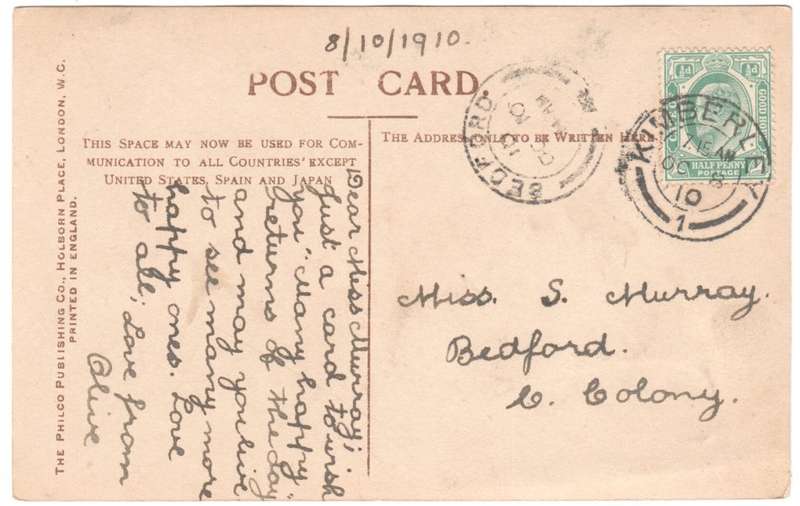 8/10/1910.
POST CARD.
THIS SPACE MAY NOW BE USED FOR COM-
MUNICATION TO ALL COUNTRIES EXCEPT
UNITED STATES, SPAIN AND JAPAN
THE ADDRESS ONLY TO BE WRITTEN HERE
THE PHILCO PUBLISHING CO., HOLBORN PLACE, LONDON, W.C.
PRINTED IN ENGLAND.
Dear Miss Murray;
Just a card to wish
you "Many happy
returns of the day"
and may you live
to see many more
happy ones. Love
to all; Love from
Olive
Miss. S. Murray.
Bedford.
C. Colony.
BEDFORD
KIMBERLEY
7.15 AM
OC 8
10
1
HALF PENNY
POSTAGE